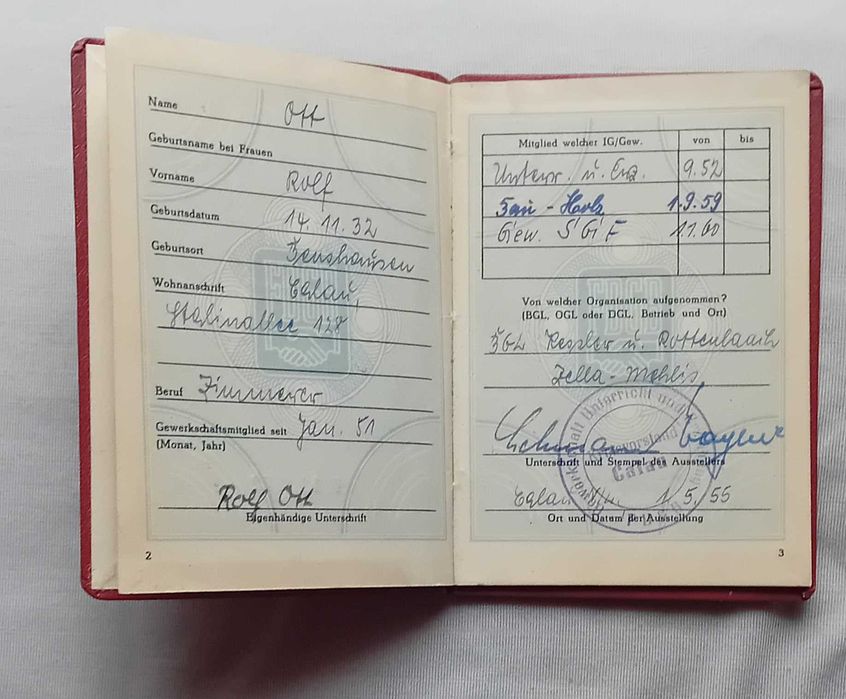 Name Ott
Geburtsname bei Frauen
Vorname Rolf
Geburtsdatum 14.11.32
Geburtsort Benshausen
Wohnanschrift Calau,
Stalinallee 128
Beruf Zimmerer
Gewerkschaftsmitglied seit Jan. 51
(Monat, Jahr)
Rolf Ott
Eigenhändige Unterschrift
2
Mitglied welcher IG/Gew. von bis
Unterr. u. Erz. 9.52
Bau-Holz 1.9.59
Gew. 11.60
Von welcher Organisation aufgenommen?
(BGL, OGL oder DGL, Betrieb und Ort)
BGL u.
Zella-Mehlis
Unterschrift und Stempel des Ausstellers
Gewerkschaft Unterricht und
Kreisvorstand
Calau
Calau 1/5/55
Ort und Datum der Ausstellung
3
FDGB